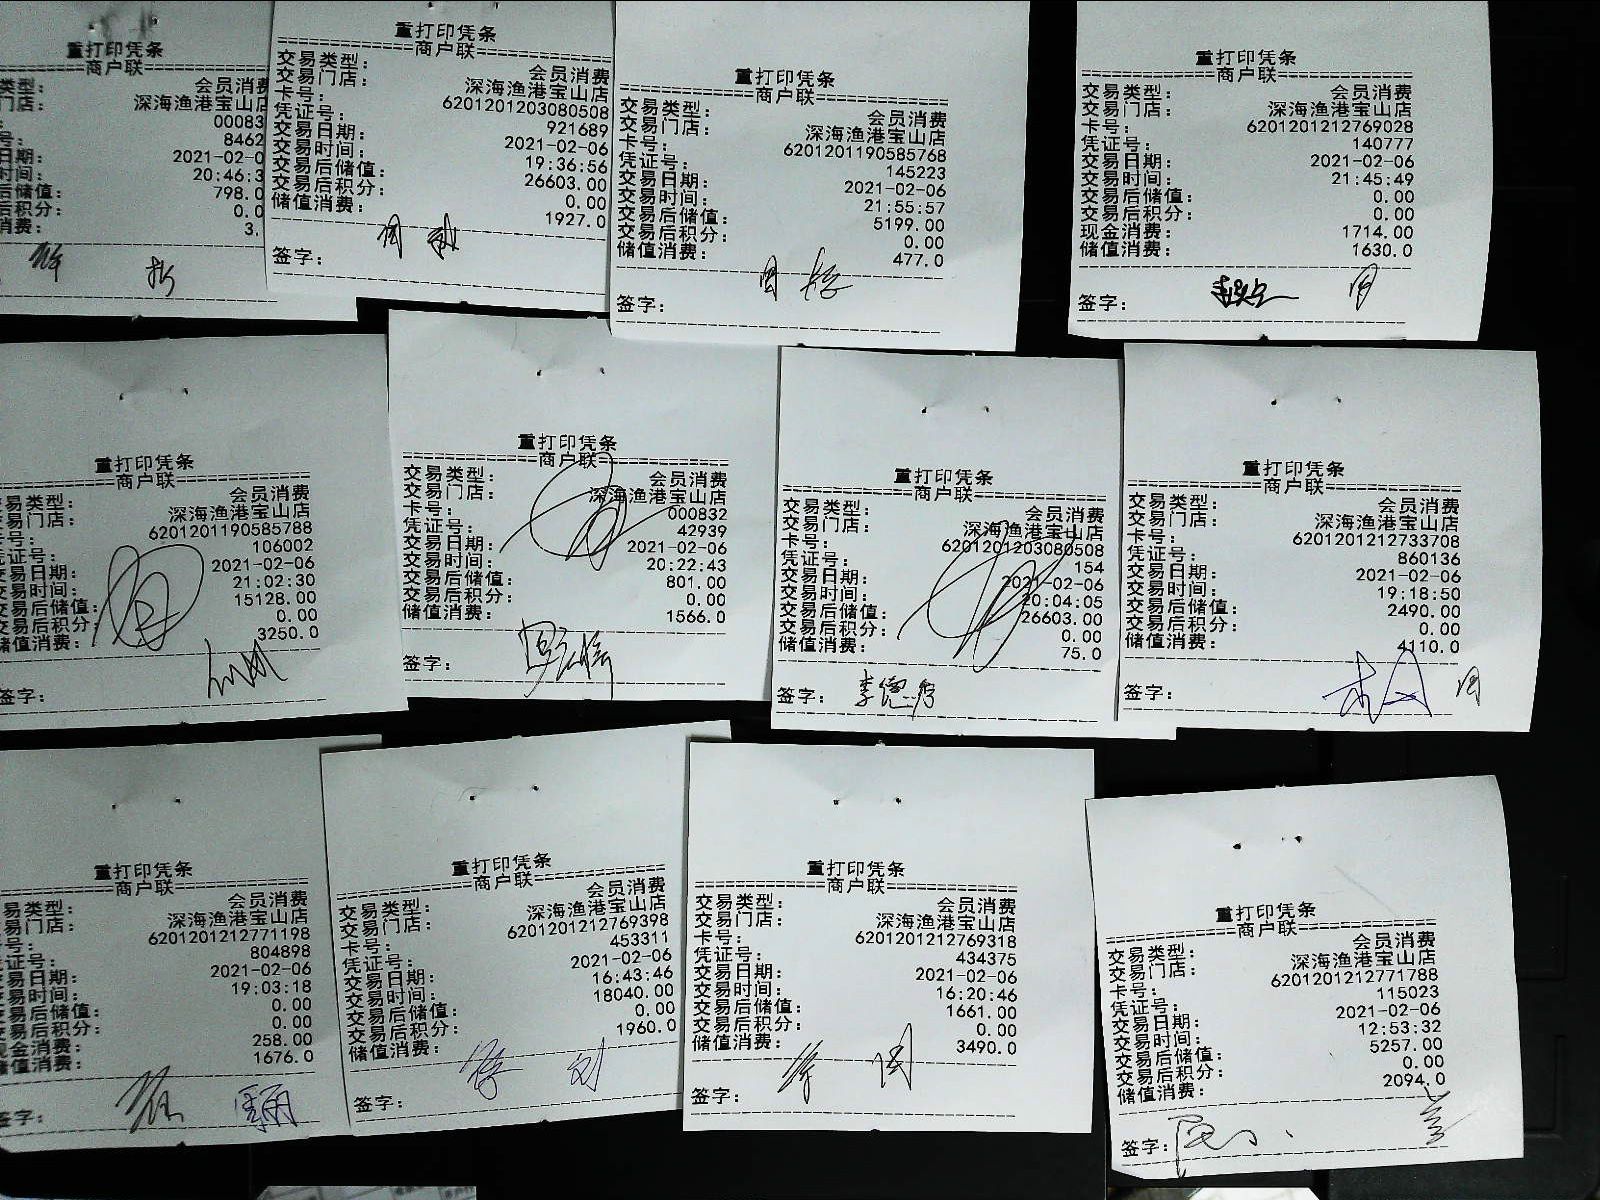 重打印凭条
商户联
类型： 会员消费
门店： 深海渔港宝山店
： 00083
号： 8462
日期： 2021-02-0
时间： 20:46:3
后储值： 798.0
后积分： 0.0
消费： 3.
重打印凭条
商户联
交易类型： 会员消费
交易门店： 深海渔港宝山店
卡号： 6201201203080508
凭证号： 921689
交易日期： 2021-02-06
交易时间： 19:36:56
交易后储值： 26603.00
交易后积分： 0.00
储值消费： 1927.0
签字：
重打印凭条
商户联
交易类型： 会员消费
交易门店： 深海渔港宝山店
卡号： 6201201190585768
凭证号： 145223
交易日期： 2021-02-06
交易时间： 21:55:57
交易后储值： 5199.00
交易后积分： 0.00
储值消费： 477.0
签字：
重打印凭条
商户联
交易类型： 会员消费
交易门店： 深海渔港宝山店
卡号： 6201201212769028
凭证号： 140777
交易日期： 2021-02-06
交易时间： 21:45:49
交易后储值： 0.00
交易后积分： 0.00
现金消费： 1714.00
储值消费： 1630.0
签字：
重打印凭条
商户联
易类型： 会员消费
交易门店： 深海渔港宝山店
卡号： 6201201190585788
凭证号： 106002
交易日期： 2021-02-06
交易时间： 21:02:30
交易后储值： 15128.00
交易后积分： 0.00
储值消费： 3250.0
签字：
重打印凭条
商户联
交易类型： 会员消费
交易门店： 深海渔港宝山店
卡号： 000832
凭证号： 42939
交易日期： 2021-02-06
交易时间： 20:22:43
交易后储值： 801.00
交易后积分： 0.00
储值消费： 1566.0
签字：
重打印凭条
商户联
交易类型： 会员消费
交易门店： 深海渔港宝山店
卡号： 6201201203080508
凭证号： 154
交易日期： 2021-02-06
交易时间： 20:04:05
交易后储值： 26603.00
交易后积分： 0.00
储值消费： 75.0
签字：
重打印凭条
商户联
交易类型： 会员消费
交易门店： 深海渔港宝山店
卡号： 6201201212733708
凭证号： 860136
交易日期： 2021-02-06
交易时间： 19:18:50
交易后储值： 2490.00
交易后积分： 0.00
储值消费： 4110.0
签字：
重打印凭条
商户联
易类型： 会员消费
交易门店： 深海渔港宝山店
号： 6201201212771198
证号： 804898
交易日期： 2021-02-06
交易时间： 19:03:18
交易后储值： 0.00
交易后积分： 0.00
现金消费： 258.00
储值消费： 1676.0
签字：
重打印凭条
商户联
交易类型： 会员消费
交易门店： 深海渔港宝山店
卡号： 6201201212769398
凭证号： 453311
交易日期： 2021-02-06
交易时间： 16:43:46
交易后储值： 18040.00
交易后积分： 0.00
储值消费： 1960.0
签字：
重打印凭条
商户联
交易类型： 会员消费
交易门店： 深海渔港宝山店
卡号： 6201201212769318
凭证号： 434375
交易日期： 2021-02-06
交易时间： 16:20:46
交易后储值： 1661.00
交易后积分： 0.00
储值消费： 3490.0
签字：
重打印凭条
商户联
交易类型： 会员消费
交易门店： 深海渔港宝山店
卡号： 6201201212771788
凭证号： 115023
交易日期： 2021-02-06
交易时间： 12:53:32
交易后储值： 5257.00
交易后积分： 0.00
储值消费： 2094.0
签字：